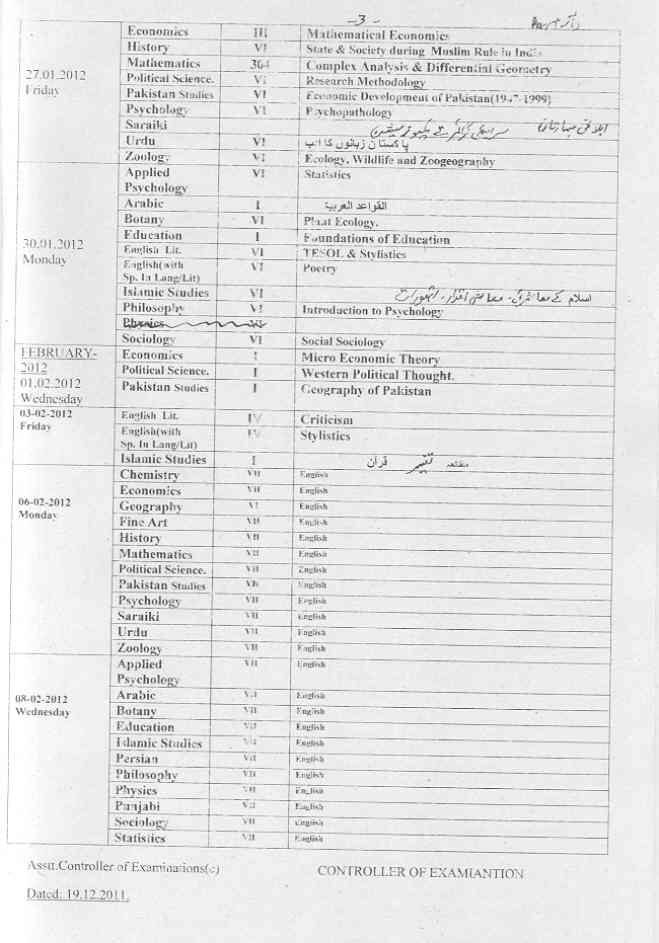 -3-
Economics III Mathematical Economics
History VI State & Society during Muslim Rule in India
27.01.2012 Mathematics 304 Complex Analysis & Differential Geometry
Friday Political Science. VI Research Methodology
Pakistan Studies VI Economic Development of Pakistan(1947-1999)
Psychology VI Psychopathology
Saraiki
Urdu VI پاکستانی زبانوں کا ادب
Zoology VI Ecology, Wildlife and Zoogeography
Applied VI Statistics
Psychology
Arabic I القواعد العربية
Botany VI Plant Ecology.
30.01.2012 Education I Foundations of Education
Monday English Lit. VI TESOL & Stylistics
English(with VI Poetry
Sp. In Lang/Lit)
Islamic Studies VI اسلام کے معاشرتی، معاشی اقدار،
Philosophy VI Introduction to Psychology
Physics
Sociology VI Social Sociology
FEBRUARY- Economics I Micro Economic Theory
2012 Political Science. I Western Political Thought.
01.02.2012 Pakistan Studies I Geography of Pakistan
Wednesday
03-02-2012 English Lit. IV Criticism
Friday English(with IV Stylistics
Sp. In Lang/Lit)
Islamic Studies I تفسیر قرآن
Chemistry VII English
Economics VII English
06-02-2012 Geography VI English
Monday Fine Art VII English
History VII English
Mathematics VII English
Political Science. VII English
Pakistan Studies VII English
Psychology VII English
Saraiki VII English
Urdu VII English
Zoology VII English
Applied VII English
Psychology
08-02-2012 Arabic VII English
Wednesday Botany VII English
Education VII English
Islamic Studies VII English
Persian VII English
Philosophy VII English
Physics VII English
Punjabi VII English
Sociology VII English
Statistics VII English
Asstt.Controller of Examinations(c) CONTROLLER OF EXAMIANTION
Dated: 19.12.2011.